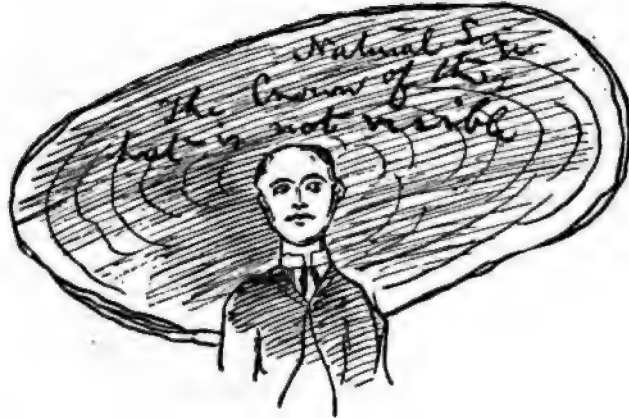 Natural Size
The Crown of this
hat is not visible